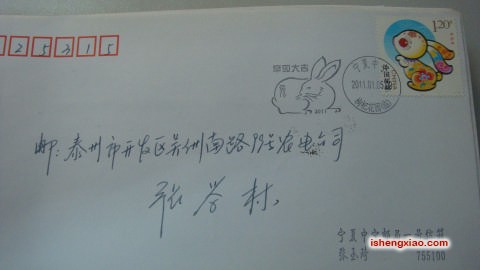 225315
1.20元
卯兔大吉
2011
宁夏中
2011.01.05
邮:泰州市开发区吴州南路19号农电公司
张学村
宁夏中宁邮局一号信箱
张玉琦
755100
ishengxiao.com